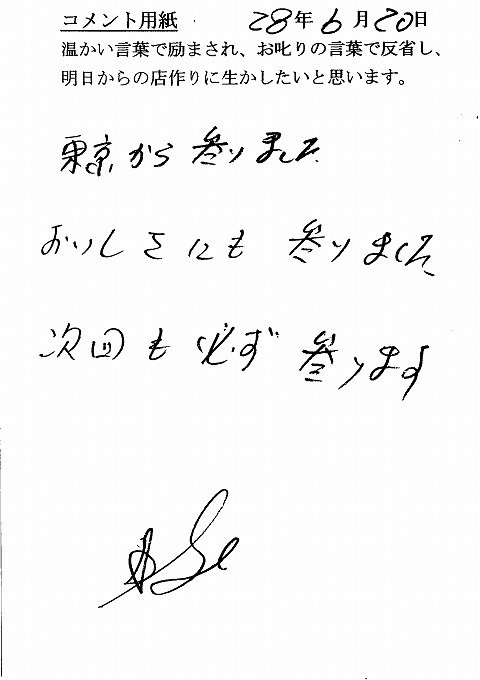 コメント用紙 28年6月20日
温かい言葉で励まされ、お叱りの言葉で反省し、
明日からの店作りに生かしたいと思います。
東京から参りました
おいしさにも参りました
次回も必ず参ります